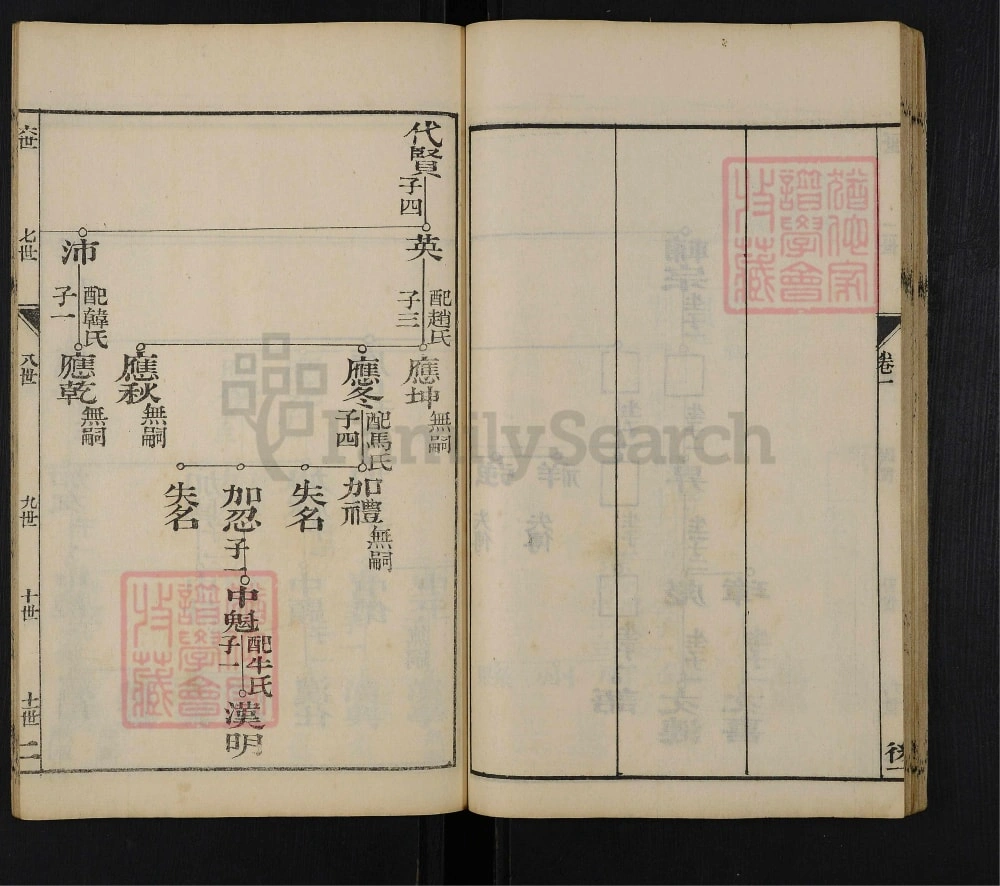 卷一
後一
代賢
子四
英
配趙氏
子三
應坤
無嗣
應冬
配馬氏
子四
加禮
無嗣
失名
加忍
子一
中魁
配牛氏
子一
漢明
失名
應秋
無嗣
沛
配韓氏
子一
應乾
無嗣
六世
七世
八世
九世
十世
十一世
二
FamilySearch